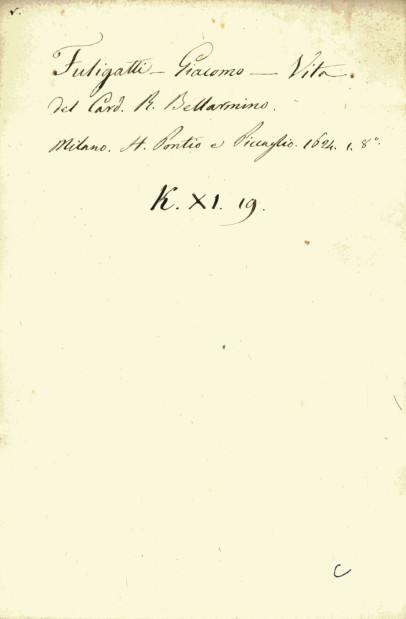 Fuligatti – Giacomo – Vita.
del Card. R. Bellarmino.
Milano. H. Pontio e Piccaglio. 1624. 1. 8°.
K. XI. 19.
C